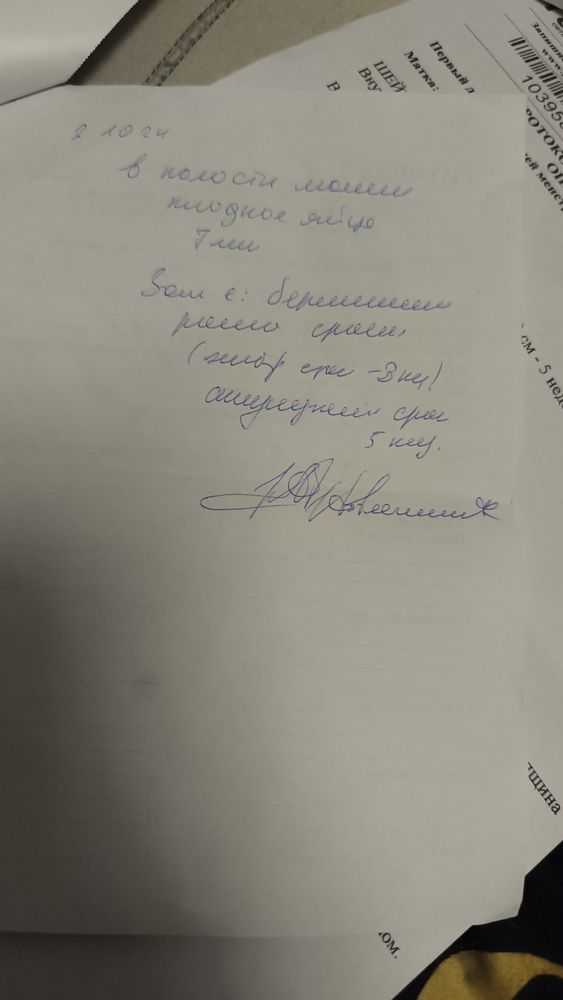 2 10 24
в полости матки
плодное яйцо
7 мм
Закл-е: беременность
раннего срока
(эмбр срок -3 нед)
акушерский срок
5 нед.
Первый д
Матка:
ШЕЙ
Вну
В
10395
РОТОКО
ОП
ей менст
см - 5 неде
щина
ом.